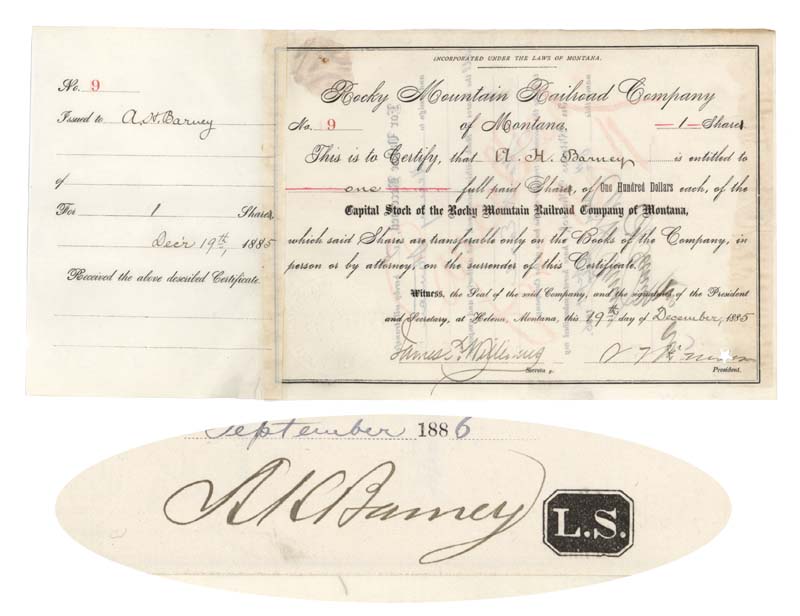 No. 9
Issued to A. H. Barney
of
For 1 Shares,
Decr 19th, 1885
Received the above described Certificate.
INCORPORATED UNDER THE LAWS OF MONTANA.
Rocky Mountain Railroad Company
No. 9 of Montana. 1 Share
This is to Certify, that A. H. Barney is entitled to
one full paid Share, of One Hundred Dollars each, of the
Capital Stock of the Rocky Mountain Railroad Company of Montana,
which said Shares are transferable only on the Books of the Company, in
person or by attorney, on the surrender of this Certificate.
Witness, the Seal of the said Company, and the signatures of the President
and Secretary, at Helena, Montana, this 19th day of December, 1885
James
President.
September 1886
A H Barney
L.S.